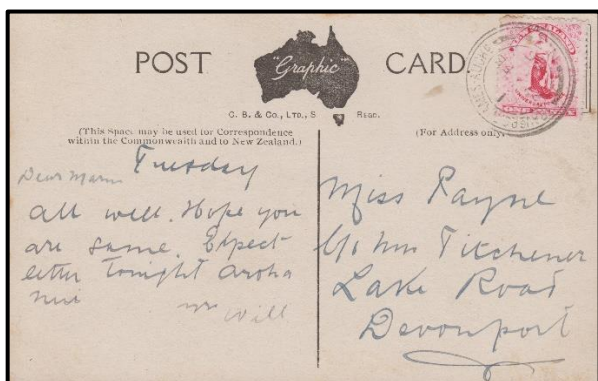 POST "Graphic" CARD
C. B. & Co., LTD., S REGD.
(This Space may be used for Correspondence
within the Commonwealth and to New Zealand.)
(For Address only)
Tuesday
Dear
all well. Hope you
are same. Expect
letter tonight aroha
nui
Will
Miss Payne
c/o Mrs Titchener
Lake Road
Devonport